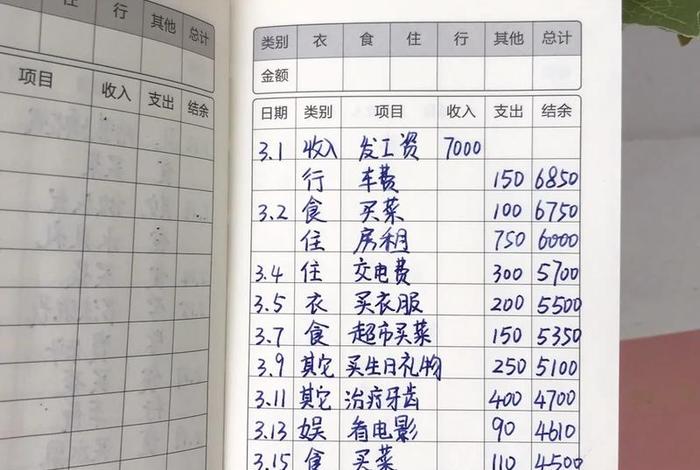 住 行 其他 总计
项目 收入 支出 结余
类别 衣 食 住 行 其他 总计
金额
日期 类别 项目 收入 支出 结余
3.1 收入 发工资 7000
行 车费 150 6850
3.2 食 买菜 100 6750
住 房租 750 6000
3.4 住 交电费 300 5700
3.5 衣 买衣服 200 5500
3.7 食 超市买菜 150 5350
3.9 其它 买生日礼物 250 5100
3.11 其它 治疗牙齿 400 4700
3.13 娱 看电影 90 4610
3.15 食 买菜 110 4500